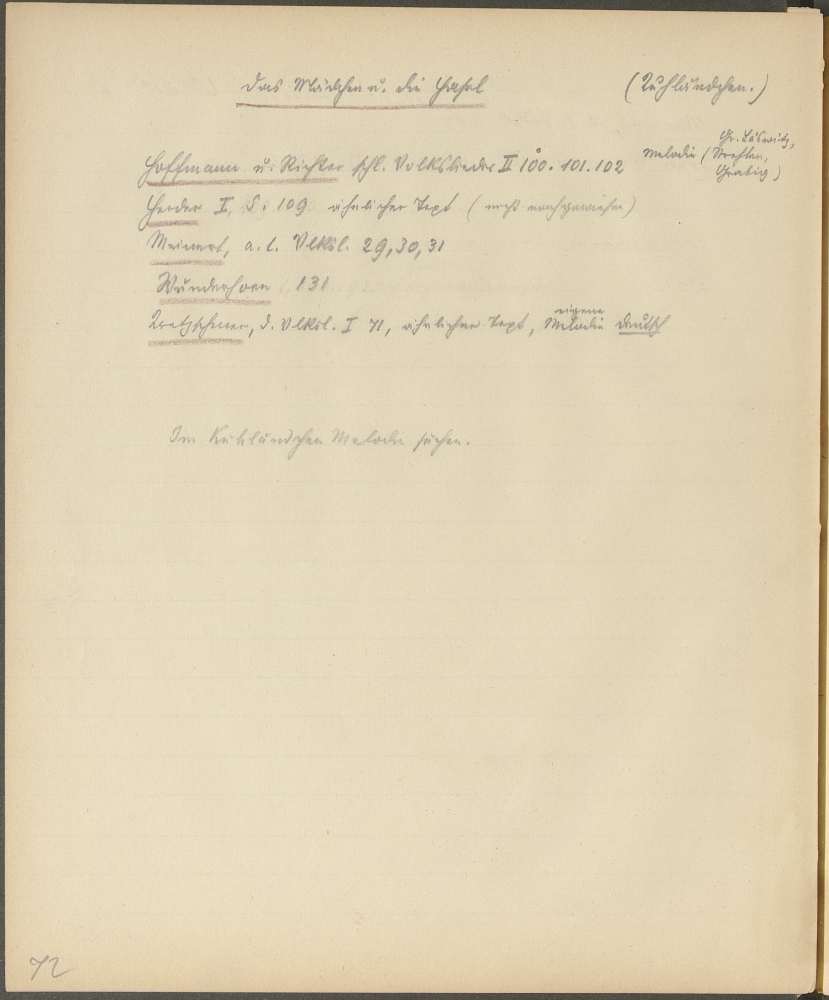 Das Mädchen u. die Hasel (Kuhländchen.)
Hoffmann u. Richter schl. Volkslieder II 100. 101. 102 Melodie (Gr. Läswitz,
Strehlen,
Gräbig)
Herder I, S. 109 ähnlicher Text (nicht nachgewiesen)
Meinert, a. t. Vlksl. 29, 30, 31
Wunderhorn 131
Kretzschmer, d. Vlksl. I 71, ähnlicher Text, eigene Melodie deutsch
Im Kuhländchen Melodie suchen.
72